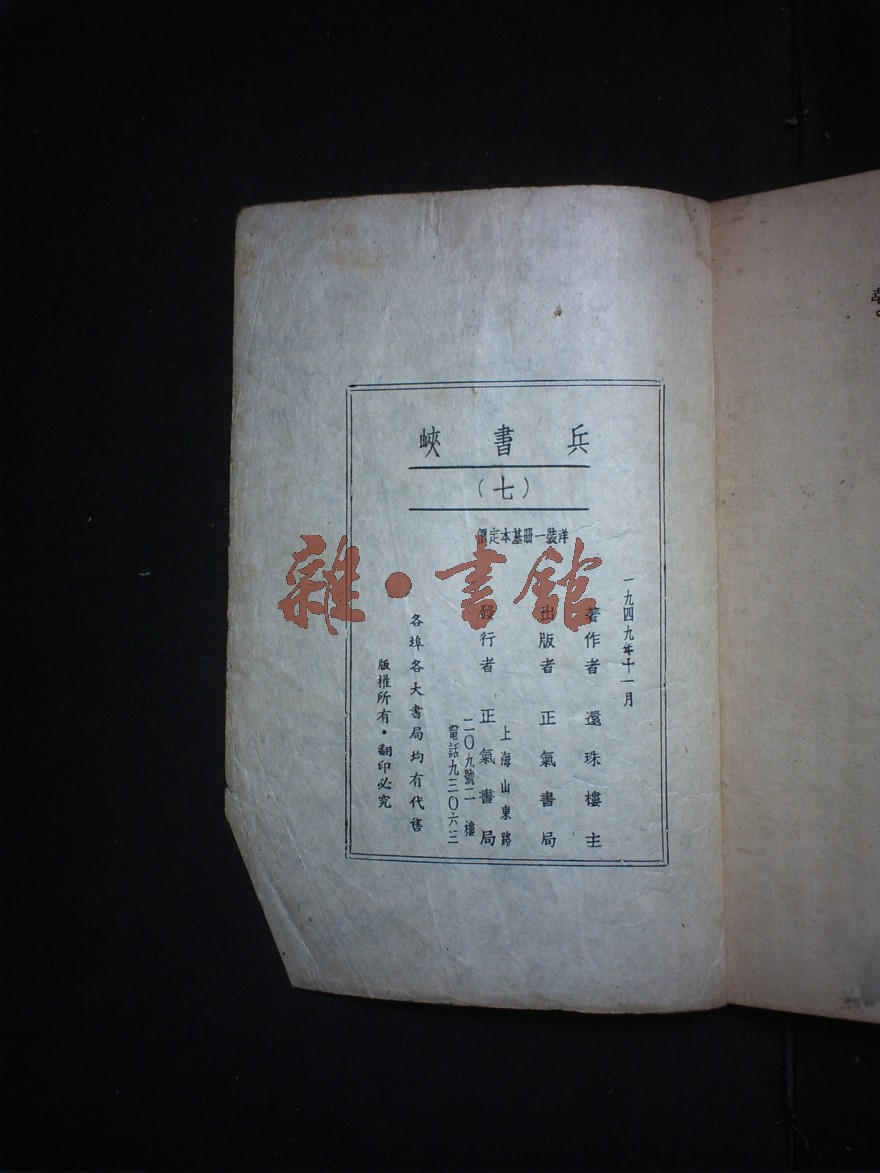 兵書峽
（七）
洋裝一冊基本定價
一九四九年十一月
著作者 還珠樓主
出版者 正氣書局
發行者 正氣書局
上海山東路
二〇九號二樓
電話九三〇六三
各埠各大書局均有代售
版權所有・翻印必究
雜・書館